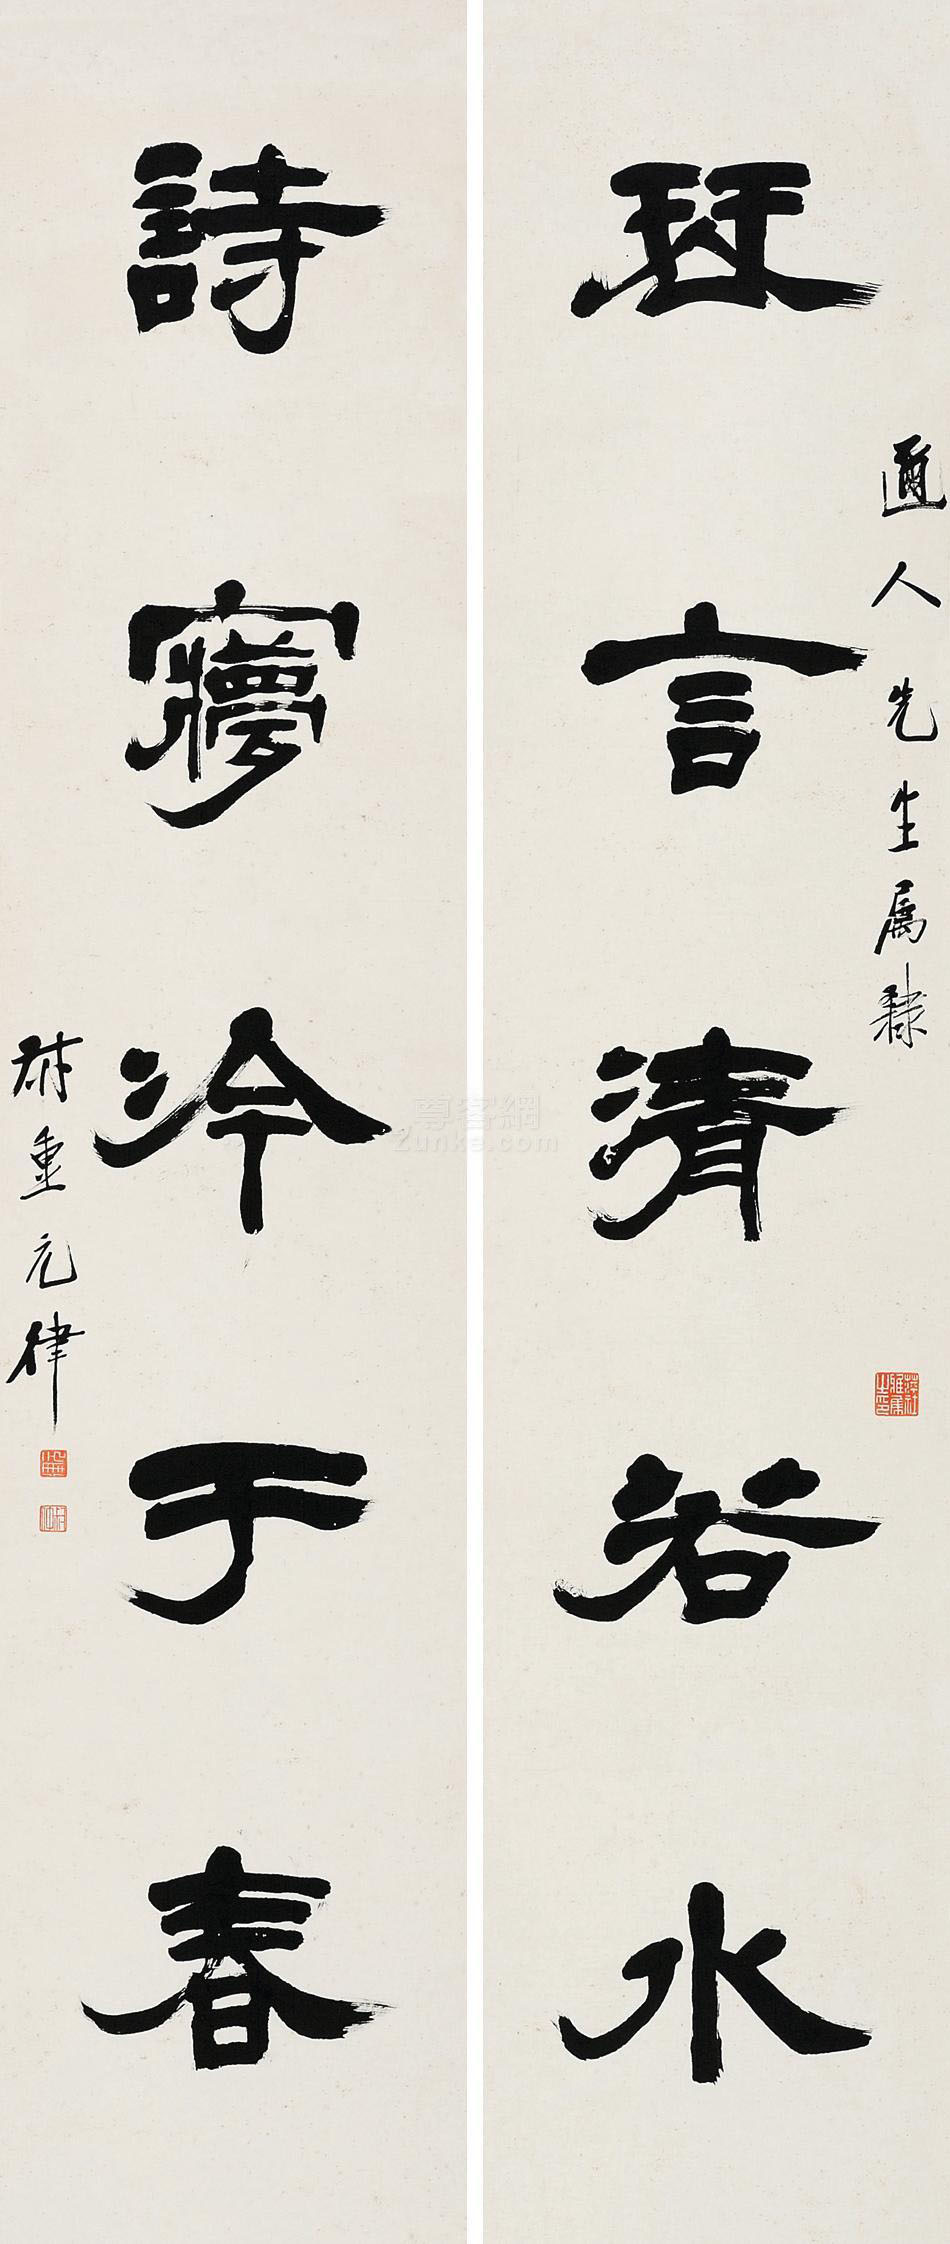 邇人先生属隸
珡言清若水
詩㝱冷于春
重元律
尊客網
Zunke.com